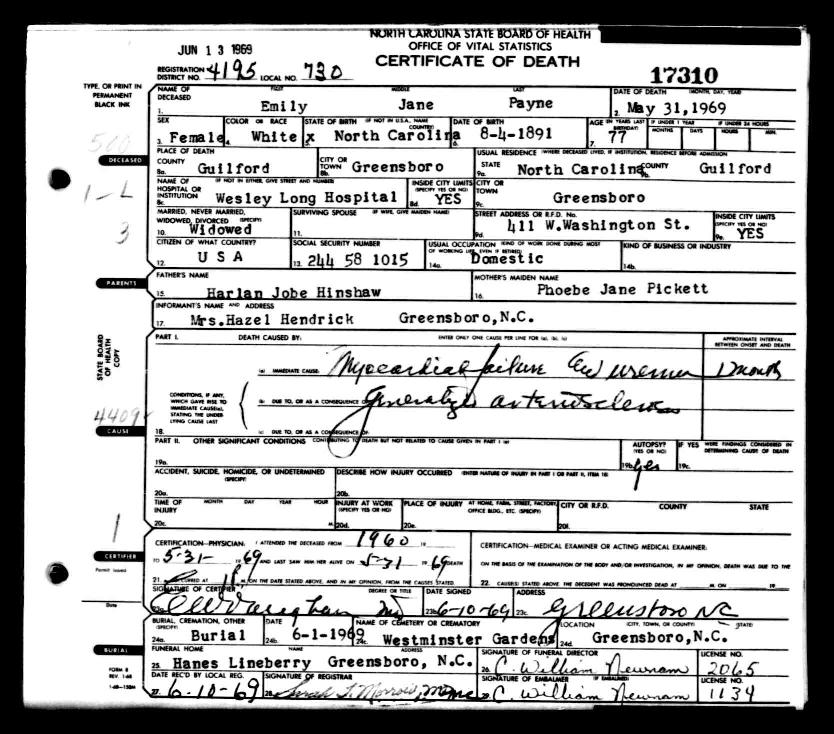 NORTH CAROLINA STATE BOARD OF HEALTH
OFFICE OF VITAL STATISTICS
CERTIFICATE OF DEATH
JUN 13 1969
REGISTRATION DISTRICT NO. 4195 LOCAL NO. 730
17310
TYPE, OR PRINT IN PERMANENT BLACK INK
NAME OF DECEASED FIRST MIDDLE LAST DATE OF DEATH (MONTH, DAY, YEAR)
1. Emily Jane Payne 2. May 31,1969
SEX COLOR OR RACE STATE OF BIRTH (IF NOT IN U.S.A., NAME COUNTRY) DATE OF BIRTH AGE (IN YEARS LAST BIRTHDAY) IF UNDER 1 YEAR IF UNDER 24 HOURS
MONTHS DAYS HOURS MIN.
3. Female 4. White x 5. North Carolina 6. 8-4-1891 7. 77
DECEASED
PLACE OF DEATH USUAL RESIDENCE (WHERE DECEASED LIVED, IF INSTITUTION, RESIDENCE BEFORE ADMISSION)
COUNTY CITY OR TOWN STATE COUNTY
8a. Guilford 8b. Greensboro 9a. North Carolina 9b. Guilford
NAME OF HOSPITAL OR INSTITUTION (IF NOT IN EITHER, GIVE STREET AND NUMBER) INSIDE CITY LIMITS (SPECIFY YES OR NO) CITY OR TOWN
8c. Wesley Long Hospital 8d. YES 9c. Greensboro
1-L
3
MARRIED, NEVER MARRIED, WIDOWED, DIVORCED (SPECIFY) SURVIVING SPOUSE (IF WIFE, GIVE MAIDEN NAME) STREET ADDRESS OR R.F.D. No. INSIDE CITY LIMITS (SPECIFY YES OR NO)
10. Widowed 11. 9d. 411 W.Washington St. 9e. YES
CITIZEN OF WHAT COUNTRY? SOCIAL SECURITY NUMBER USUAL OCCUPATION (KIND OF WORK DONE DURING MOST OF WORKING LIFE, EVEN IF RETIRED) KIND OF BUSINESS OR INDUSTRY
12. U S A 13. 244 58 1015 14a. Domestic 14b.
PARENTS
FATHER'S NAME MOTHER'S MAIDEN NAME
15. Harlan Jobe Hinshaw 16. Phoebe Jane Pickett
INFORMANT'S NAME AND ADDRESS
17. Mrs.Hazel Hendrick Greensboro,N.C.
STATE BOARD OF HEALTH COPY
PART I. DEATH CAUSED BY: ENTER ONLY ONE CAUSE PER LINE FOR (a), (b), (c) APPROXIMATE INTERVAL BETWEEN ONSET AND DEATH
(a) IMMEDIATE CAUSE: Myocardial failure uremia 1 month
CONDITIONS, IF ANY, WHICH GAVE RISE TO IMMEDIATE CAUSE(a), STATING THE UNDERLYING CAUSE LAST
(b) DUE TO, OR AS A CONSEQUENCE OF: Generalized arteriosclerosis
4409
CAUSE
18. (c) DUE TO, OR AS A CONSEQUENCE OF:
PART II. OTHER SIGNIFICANT CONDITIONS CONTRIBUTING TO DEATH BUT NOT RELATED TO CAUSE GIVEN IN PART I (a) AUTOPSY? (YES OR NO) IF YES WERE FINDINGS CONSIDERED IN DETERMINING CAUSE OF DEATH
19a. 19b. yes 19c.
ACCIDENT, SUICIDE, HOMICIDE, OR UNDETERMINED (SPECIFY) DESCRIBE HOW INJURY OCCURRED (ENTER NATURE OF INJURY IN PART I OR PART II, ITEM 18)
20a. 20b.
TIME OF INJURY MONTH DAY YEAR HOUR INJURY AT WORK (SPECIFY YES OR NO) PLACE OF INJURY AT HOME, FARM, STREET, FACTORY, OFFICE BLDG., ETC. (SPECIFY) CITY OR R.F.D. COUNTY STATE
20c. M. 20d. 20e. 20f.
1
CERTIFICATION—PHYSICIAN: I ATTENDED THE DECEASED FROM 1960 19 CERTIFICATION—MEDICAL EXAMINER OR ACTING MEDICAL EXAMINER:
CERTIFIER
TO 5-31- 1969 AND LAST SAW HIM HER ALIVE ON 5-31 1969 DEATH ON THE BASIS OF THE EXAMINATION OF THE BODY AND/OR INVESTIGATION, IN MY OPINION, DEATH WAS DUE TO THE
Permit issued
21. OCCURRED AT M. ON THE DATE STATED ABOVE, AND IN MY OPINION, FROM THE CAUSES STATED. 22. CAUSE(S) STATED ABOVE. THE DECEDENT WAS PRONOUNCED DEAD AT M. ON 19
SIGNATURE OF CERTIFIER DEGREE OR TITLE DATE SIGNED ADDRESS
Date
23a. MD 23b. 6-10-69 23c. Greensboro NC
BURIAL, CREMATION, OTHER (SPECIFY) DATE NAME OF CEMETERY OR CREMATORY LOCATION (CITY, TOWN, OR COUNTY) (STATE)
24a. Burial 24b. 6-1-1969 24c. Westminster Gardens 24d. Greensboro,N.C.
BURIAL
FUNERAL HOME NAME ADDRESS SIGNATURE OF FUNERAL DIRECTOR LICENSE NO.
25. Hanes Lineberry Greensboro, N.C. 26. C. William Newnam 2065
FORM 8
REV. 1-68
DATE REC'D BY LOCAL REG. SIGNATURE OF REGISTRAR SIGNATURE OF EMBALMER (IF EMBALMED) LICENSE NO.
27. 6-10-69 28. Sarah T. Morrow, 29. C. William Newnam 1134